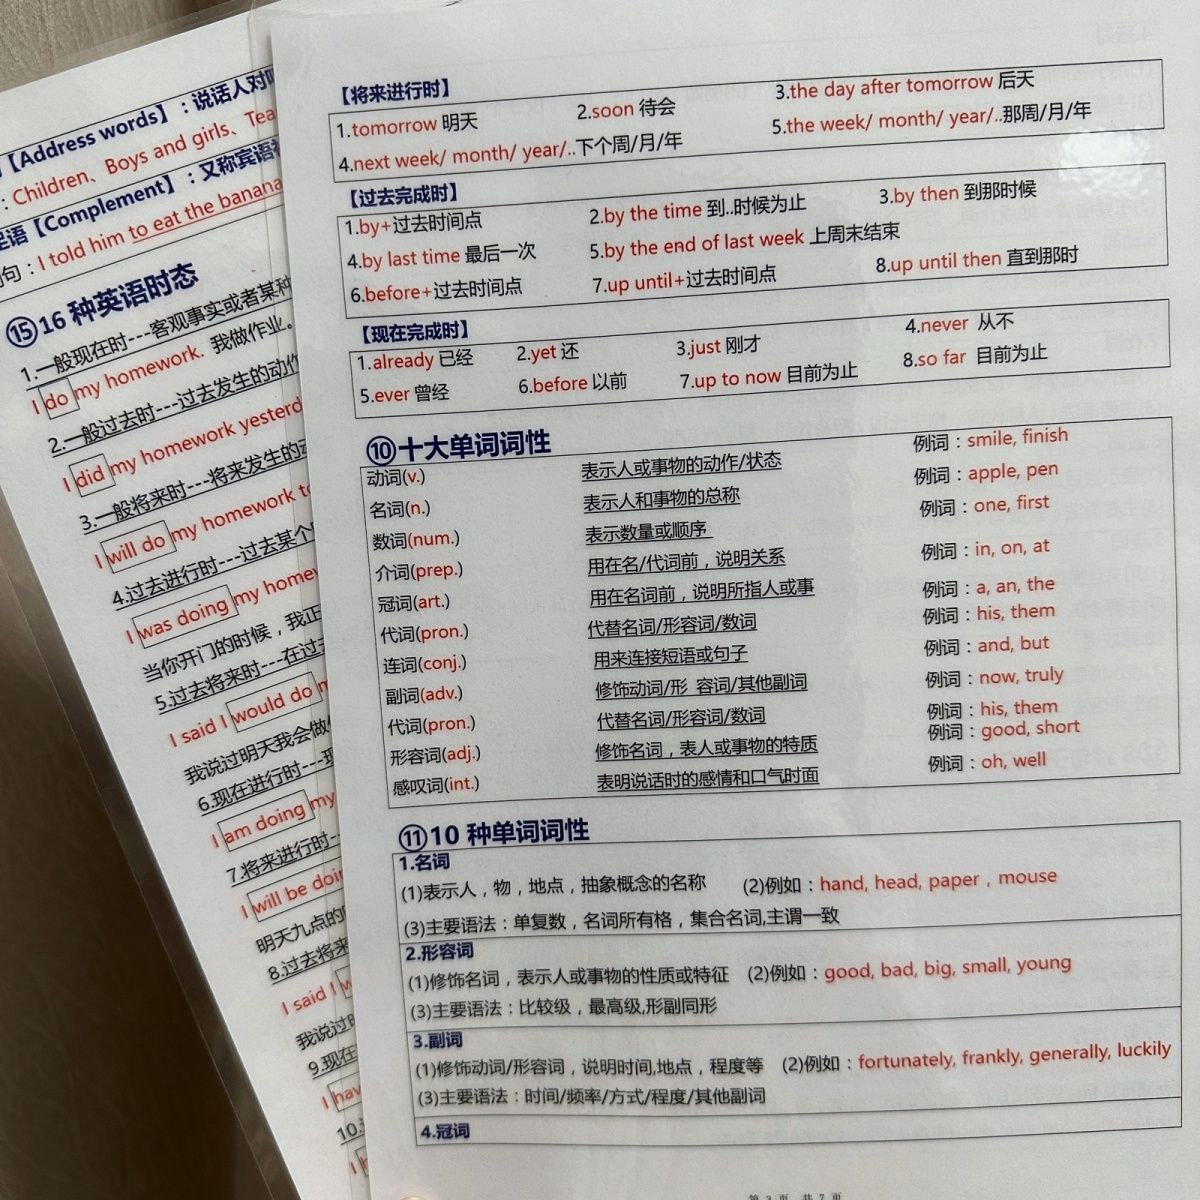 【Address words】：说话人对
：Children、Boys and girls、Tea
【Complement】：又称宾语
句：I told him to eat the banana
⑮16 种英语时态
1.一般现在时---客观事实或者某种
I do my homework. 我做作业。
2.一般过去时---过去发生的动作
I did my homework yesterd
3.一般将来时---将来发生的动
I will do my homework to
4.过去进行时---过去某个
I was doing my home
当你开门的时候，我正
5.过去将来时---在过
I said I would do
我说过明天我会做
6.现在进行时---现
I am doing my
7.将来进行时--
I will be doin
明天九点的
8.过去将来
I said I w
我说过
9.现在
I hav
10.
I h
【将来进行时】
1.tomorrow 明天 2.soon 待会 3.the day after tomorrow 后天
4.next week/ month/ year/..下个周/月/年 5.the week/ month/ year/..那周/月/年
【过去完成时】
1.by+过去时间点 2.by the time 到..时候为止 3.by then 到那时候
4.by last time 最后一次 5.by the end of last week 上周末结束
6.before+过去时间点 7.up until+过去时间点 8.up until then 直到那时
【现在完成时】
1.already 已经 2.yet 还 3.just 刚才 4.never 从不
5.ever 曾经 6.before 以前 7.up to now 目前为止 8.so far 目前为止
⑩十大单词词性
动词(v.) 表示人或事物的动作/状态 例词：smile, finish
名词(n.) 表示人和事物的总称 例词：apple, pen
数词(num.) 表示数量或顺序 例词：one, first
介词(prep.) 用在名/代词前，说明关系 例词：in, on, at
冠词(art.) 用在名词前，说明所指人或事 例词：a, an, the
代词(pron.) 代替名词/形容词/数词 例词：his, them
连词(conj.) 用来连接短语或句子 例词：and, but
副词(adv.) 修饰动词/形 容词/其他副词 例词：now, truly
代词(pron.) 代替名词/形容词/数词 例词：his, them
形容词(adj.) 修饰名词，表人或事物的特质 例词：good, short
感叹词(int.) 表明说话时的感情和口气时面 例词：oh, well
⑪10 种单词词性
1.名词
(1)表示人，物，地点，抽象概念的名称 (2)例如：hand, head, paper，mouse
(3)主要语法：单复数，名词所有格，集合名词,主谓一致
2.形容词
(1)修饰名词，表示人或事物的性质或特征 (2)例如：good, bad, big, small, young
(3)主要语法：比较级，最高级,形副同形
3.副词
(1)修饰动词/形容词，说明时间,地点，程度等 (2)例如：fortunately, frankly, generally, luckily
(3)主要语法：时间/频率/方式/程度/其他副词
4.冠词
第 3 页 共 7 页